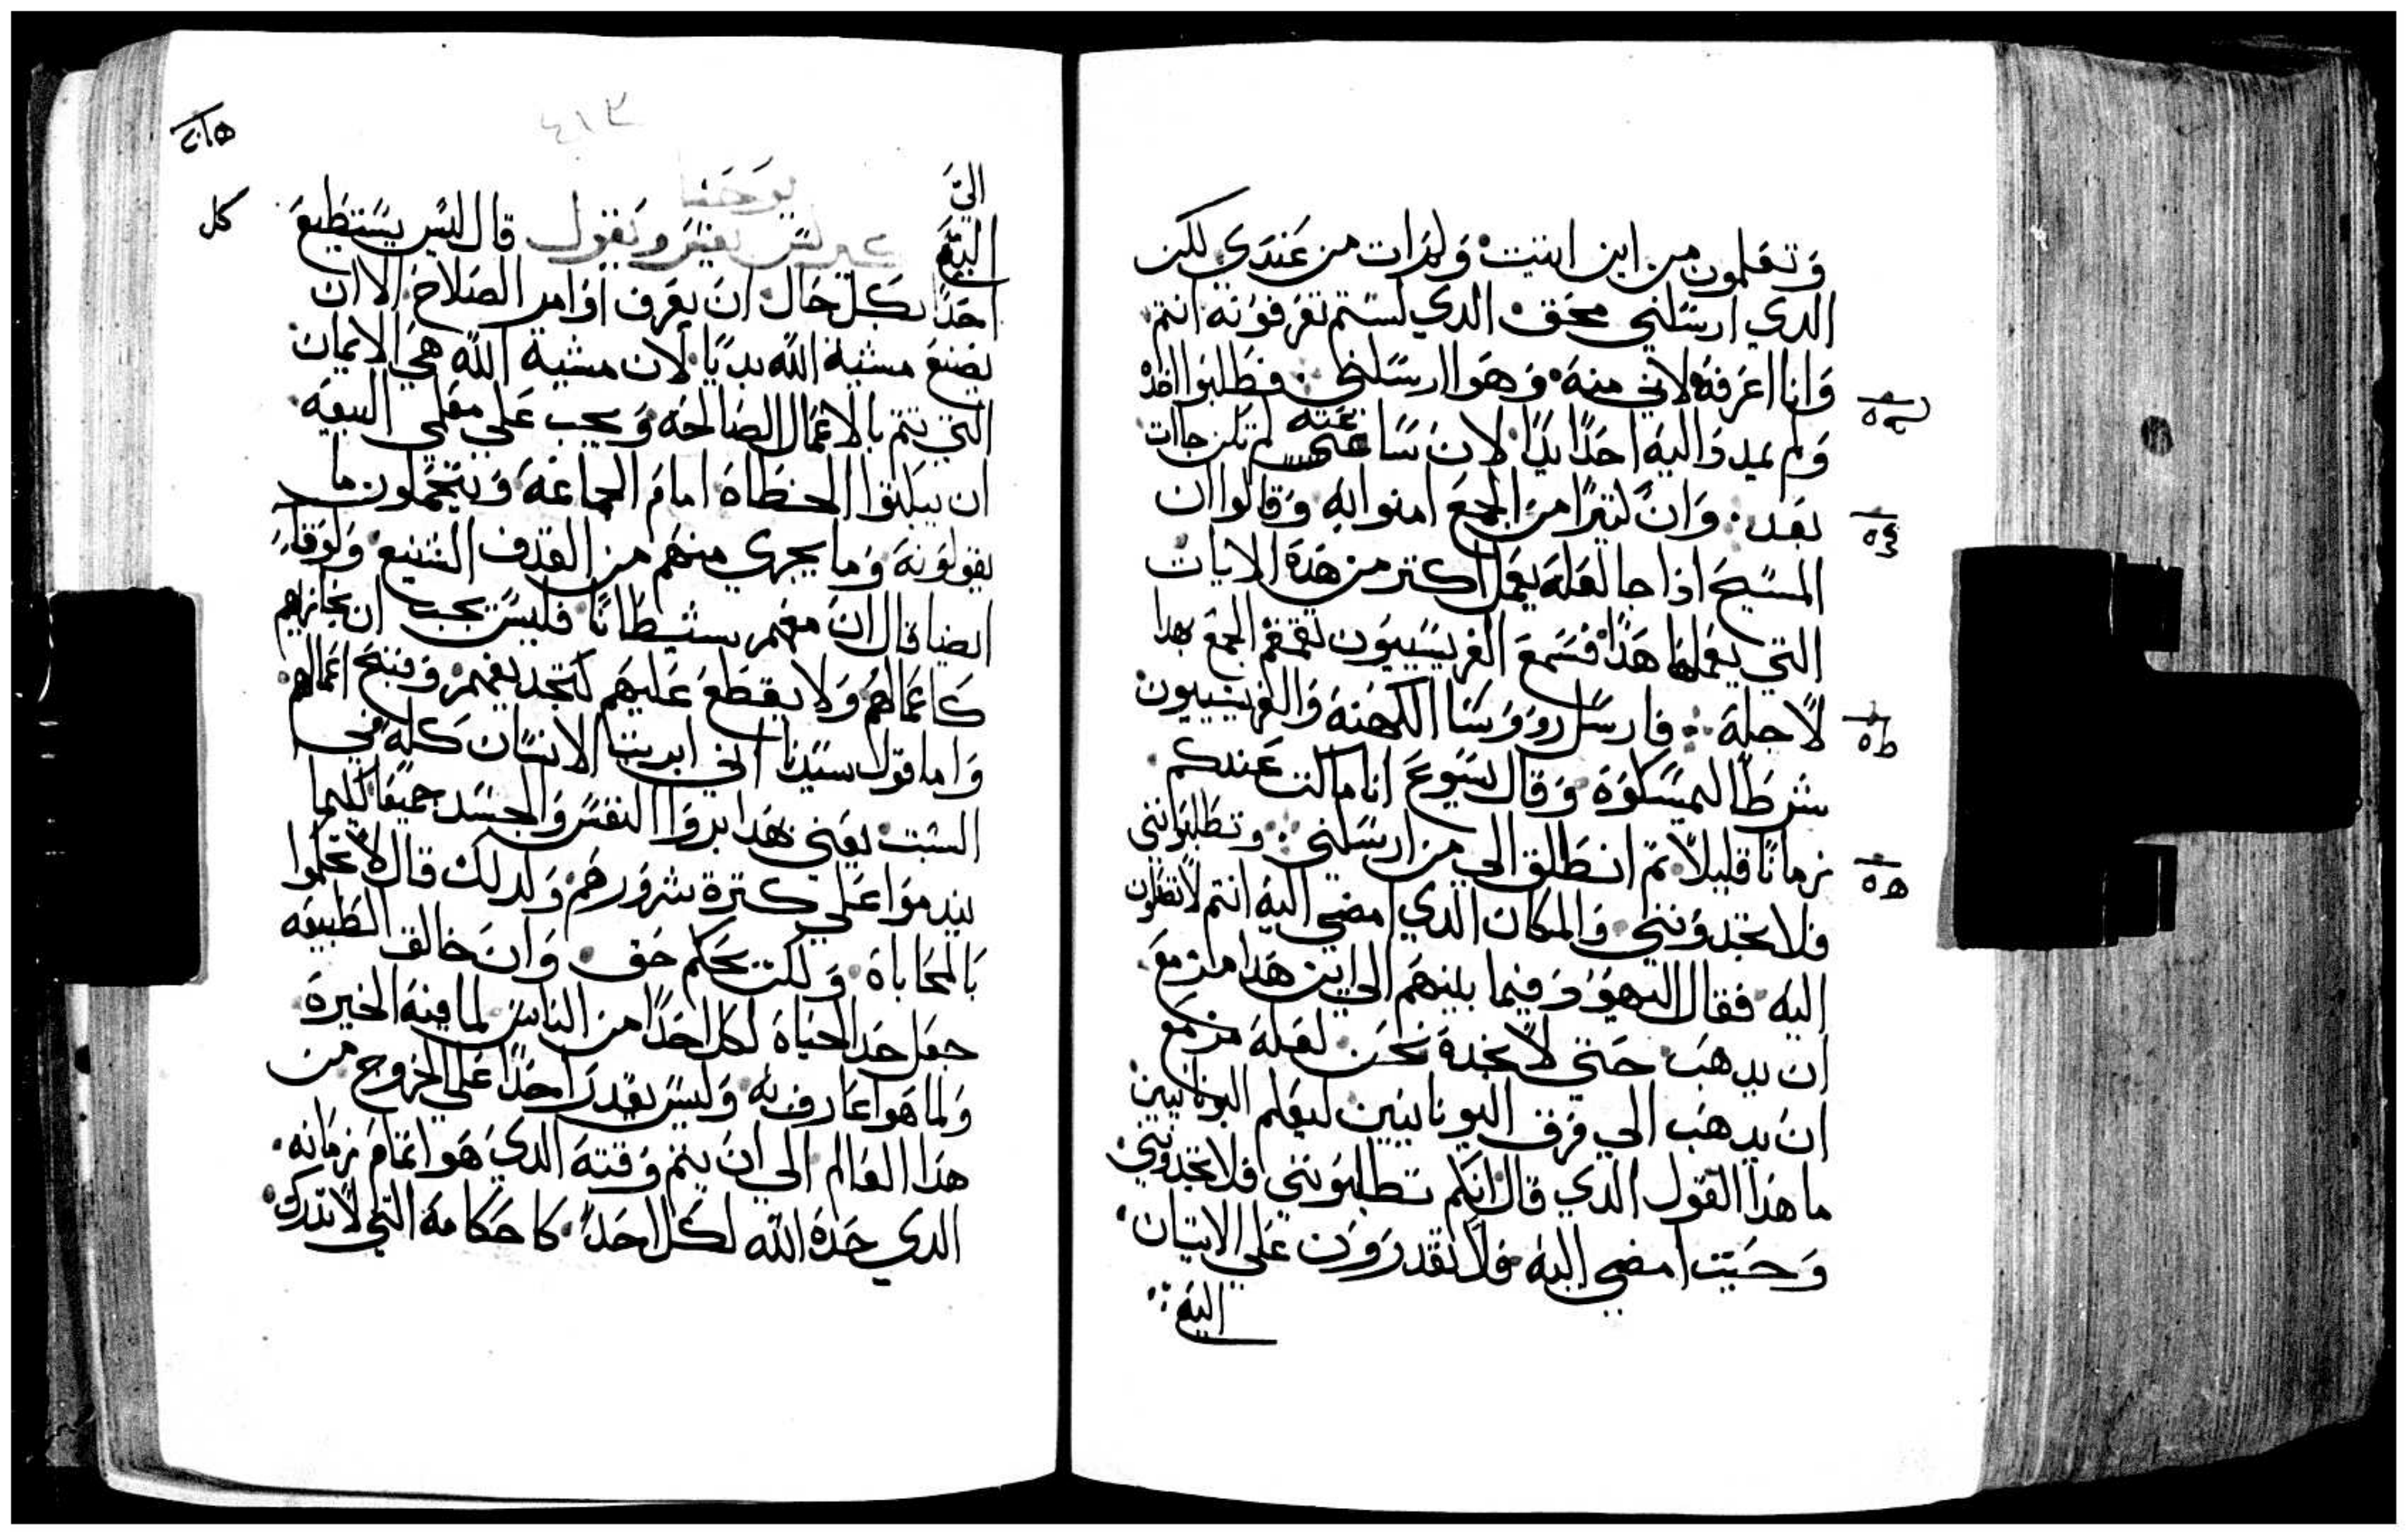 وتعلمون من اين اتيت ولم ات من عندي لكن
الدي ارسلني محق الدي لستم تعرفونه انتم
وانا اعرفه لاني منه وهوا ارسلني فطلبوا اخده
ولم يمد اليه احدا يدا لان ساعته لم تكن جات
بعد وان كتيرا من الجمع امنوا به وقالوا ان
المسيح اذا جا لعله يعمل اكتر من هده الايات
التي يعملها هدا فسمع الفريسيون تقمقم الجمع بهدا
لاجله فارسل روورسا الكهنه والفريسيون
شرطا ليمسكوه وقال يسوع انا ماكت عندكم
زمانا قليلا تم انطلق الي من ارسلني وتطلبونني
فلا تجدونني والمكان الدي امضي اليه انتم لا تقدرون
اليه فقال اليهود فيما بينهم الي اين هدا مزمع
ان يدهب حتي لا نجده نحن لعله مزمع
ان يدهب الي فرق اليونانيين ليعلم اليونانيين
ما هدا القول الدي قال انكم تطلبونني فلا تجدونني
وحيت امضي اليه فلا تقدرون علي الاتيان
اليه
٤١٣
يوحنا
الي
اليه
تفسير ويقول قال ليس يستطيع
كل
احدا بكل حال ان يعرف اوامر الصلاح الا ان
يصنع مشية الله بديا لان مشية الله هي الايمان
التي تتم بالاعمال الصالحه ويجب علي معلمي البيعه
ان يبكتوا الخطاه امام الجماعه ويتحملون ما
يقولونه وما يجري منهم من القدف الشنيع ولو قال
ايضا قال ان معهم شيطانا فليس يجب ان نجازيهم
كاعمالهم ولا يقطع عليهم لتجديفهم وقبح اعمالهم
واما قول سيدنا اني ابريت الانسان كله في
السبت يعني بهدا ابروا النفس والجسد جميعا لكيما
يندموا علي كترة شرورهم ولدلك قال لا تحكموا
بالمحاباه ولكن بحكم حق وان خالق الطبيعه
جعل حد الحياه لكل احدا من الناس لما فيه الخيره
ولما هوا عارف به وليس يقدر احدا علي الخروج من
هدا العالم الي ان يتم وقته الدي هوا تمام زمانه
الدي حده الله لكل احدا كاحكامه التي لا تدرك